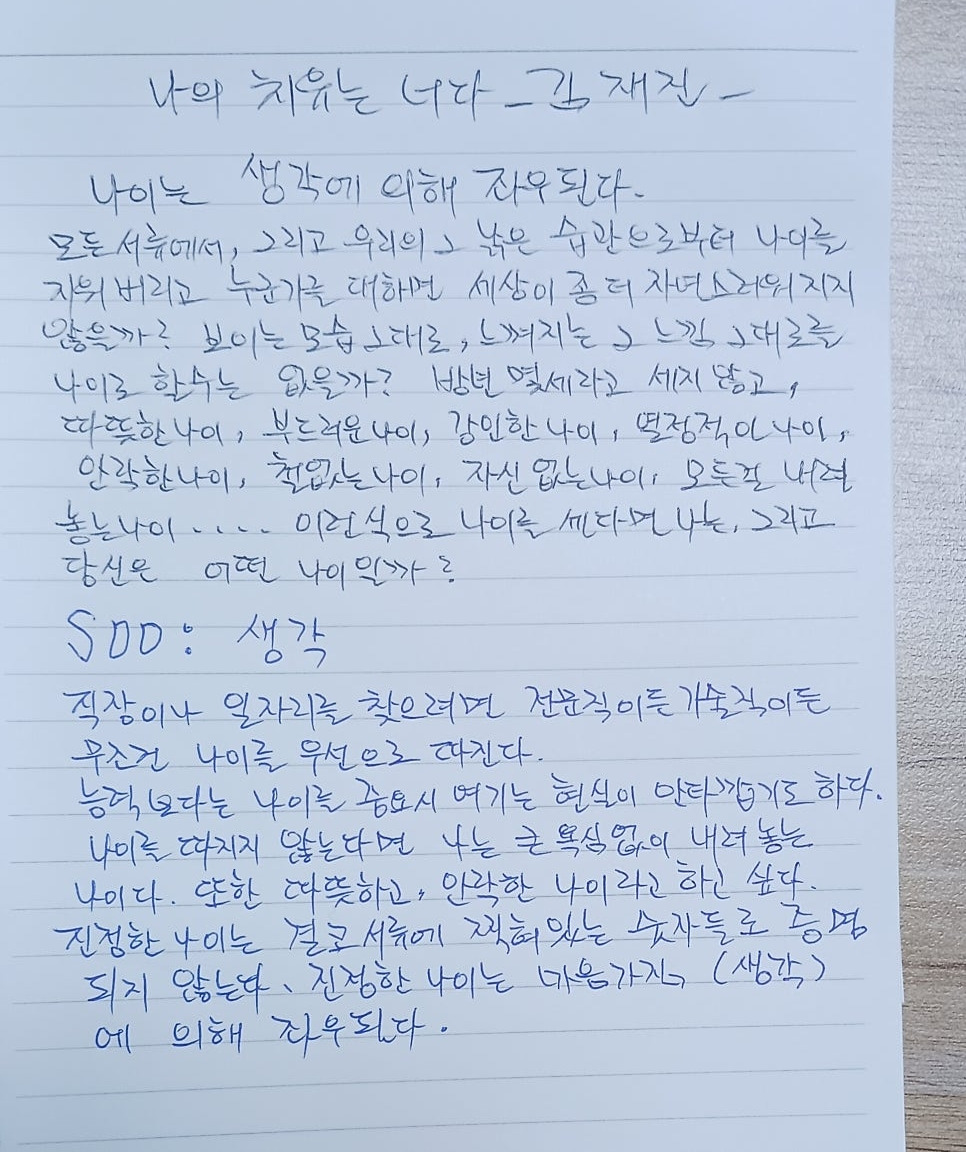 나의 치유는 너다 - 김재진 -
나이는 생각에 의해 좌우된다.
모든 서류에서, 그리고 우리의 그 낡은 습관으로부터 나이를
지워버리고 누군가를 대하면 세상이 좀 더 자연스러워지지
않을까? 보이는 모습 그대로, 느껴지는 그 느낌 그대로를
나이로 할 수는 없을까? 방년 몇세라고 세지 않고,
따뜻한 나이, 부드러운 나이, 강인한 나이, 열정적인 나이,
안락한 나이, 철없는 나이, 자신 없는 나이, 모든걸 내려
놓는 나이 ..... 이런식으로 나이를 센다면 나는, 그리고
당신은 어떤 나이일까?
SDD : 생각
직장이나 일자리를 찾으려면 전문직이든 기술직이든
무조건 나이를 우선으로 따진다.
능력보다는 나이를 중요시 여기는 현실이 안타깝기도 하다.
나이를 따지지 않는다면 나는 큰 욕심없이 내려 놓는
나이다. 또한 따뜻하고, 안락한 나이라고 하고 싶다.
진정한 나이는 결코 서류에 찍혀 있는 숫자들로 증명
되지 않는다, 진정한 나이는 마음가짐, (생각)
에 의해 좌우된다.